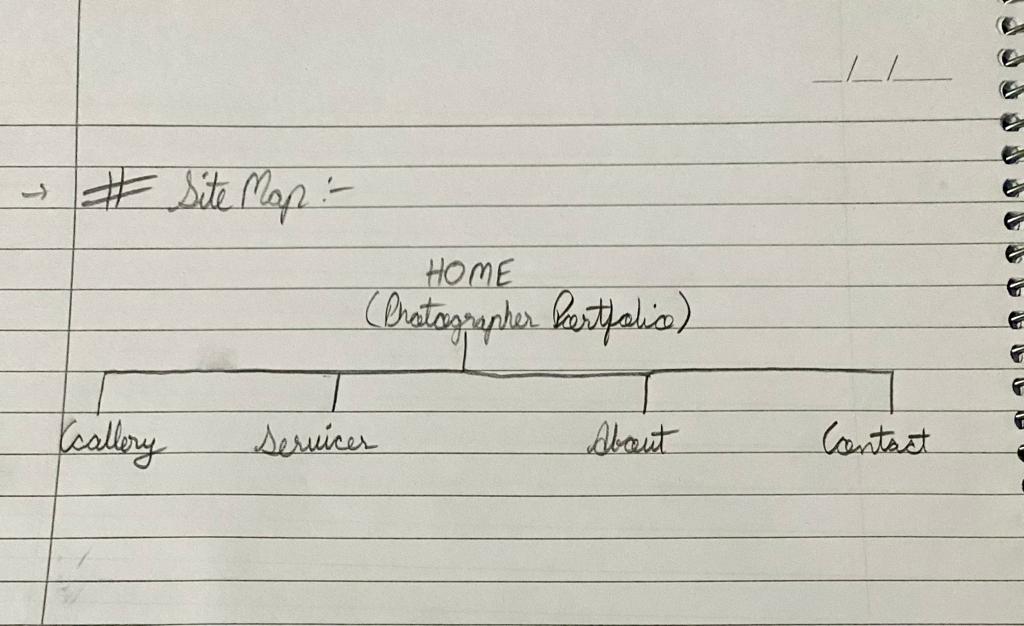 __/__/____
→ # Site Map :-
HOME
(Photographer Portfolio)
Gallery Services About Contact